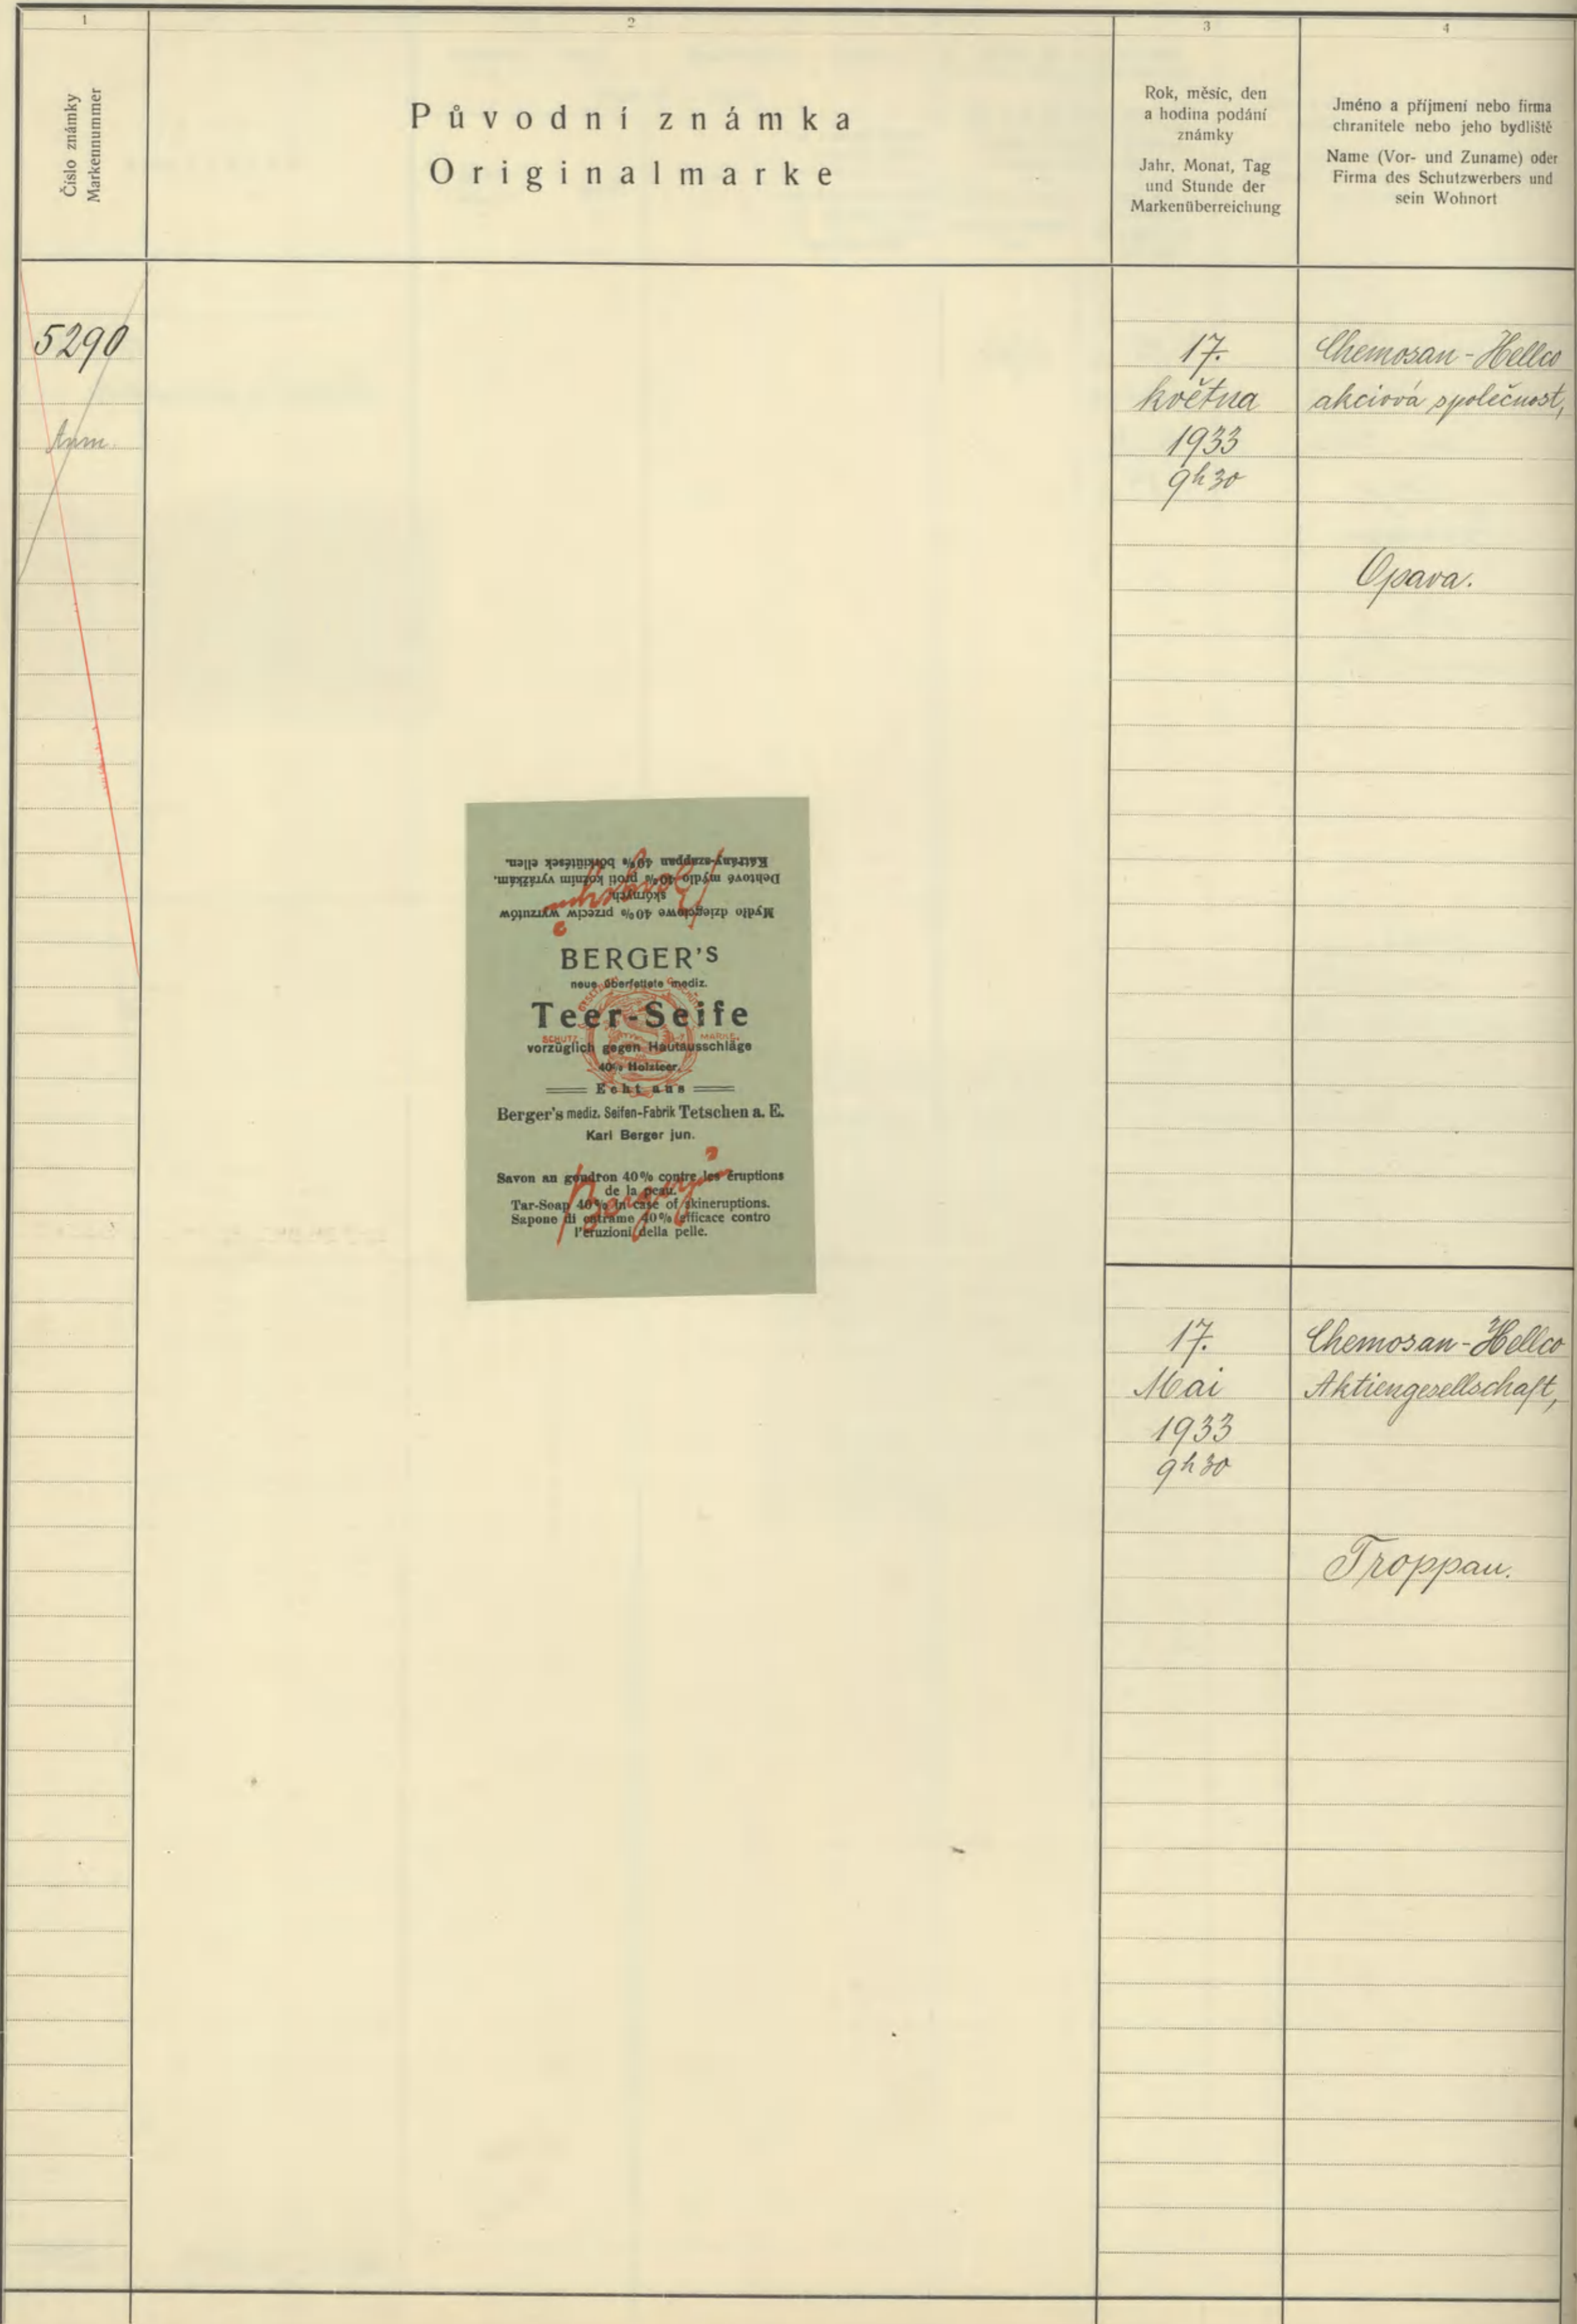 1
2
3
4
Číslo známky
Markennummer
Původní známka
Originalmarke
Rok, měsíc, den
a hodina podání
známky
Jahr, Monat, Tag
und Stunde der
Markenüberreichung
Jméno a příjmení nebo firma
chranitele nebo jeho bydliště
Name (Vor- und Zuname) oder
Firma des Schutzwerbers und
sein Wohnort
5290
17.
května
1933
9h30
Chemosan-Hellco
akciová společnost,
Opava.
Mydło dziegciowe 40% przeciw wyrzutów
skórnych.
Dehtové mýdlo 40% proti kožním vyrážkám.
Kátrány-szappan 40% börkiütések ellen.
BERGER'S
neue überfettete mediz.
Teer-Seife
SCHUTZ MARKE
vorzüglich gegen Hautausschläge
40% Holzteer.
Echt aus
Berger's mediz. Seifen-Fabrik Tetschen a. E.
Karl Berger jun.
Savon an goudron 40% contre les éruptions
de la peau.
Tar-Soap 40% in case of skineruptions.
Sapone di catrame 40% efficace contro
l'eruzioni della pelle.
17.
Mai
1933
9h30
Chemosan-Hellco
Aktiengesellschaft,
Troppau.